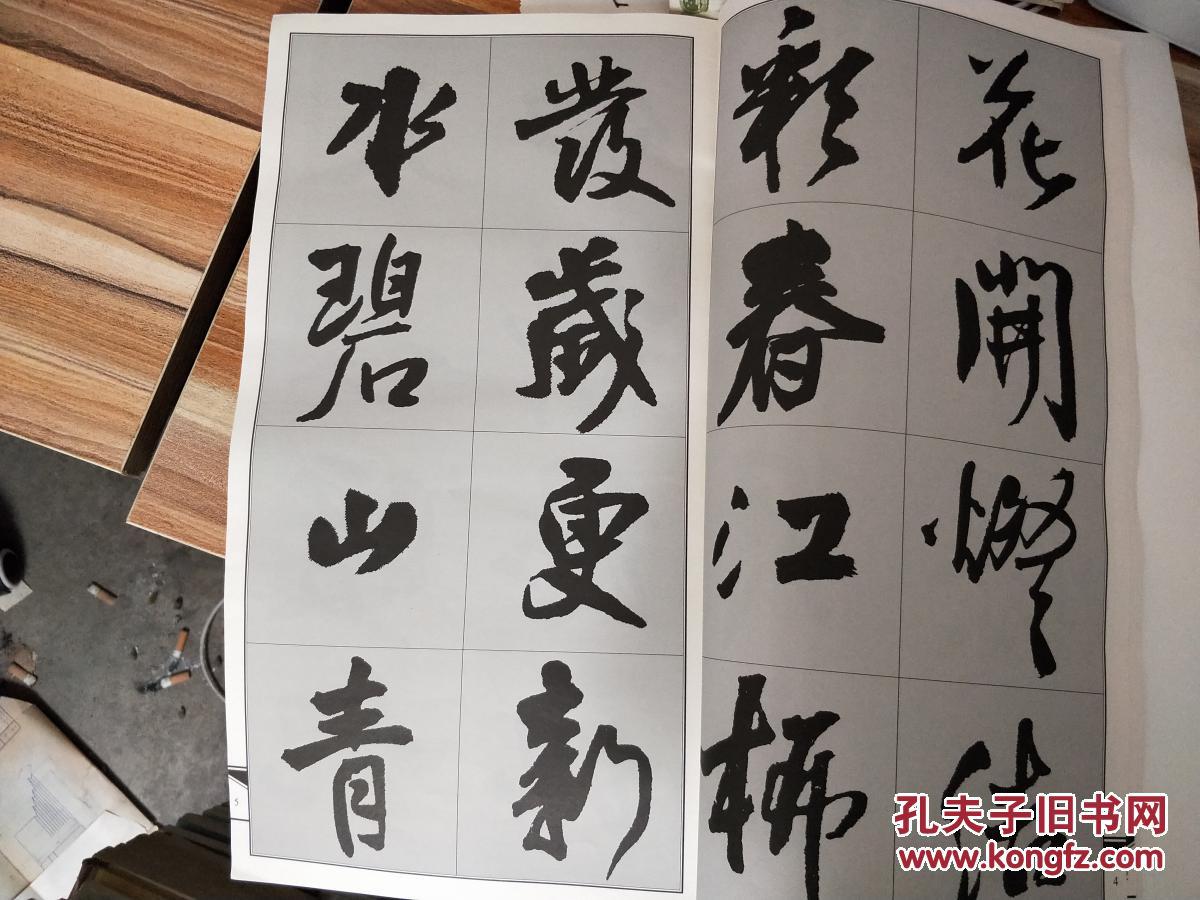 花開燈結
彩春江柳
發歲更新
水碧山青
5
4
孔夫子旧书网
www.kongfz.com